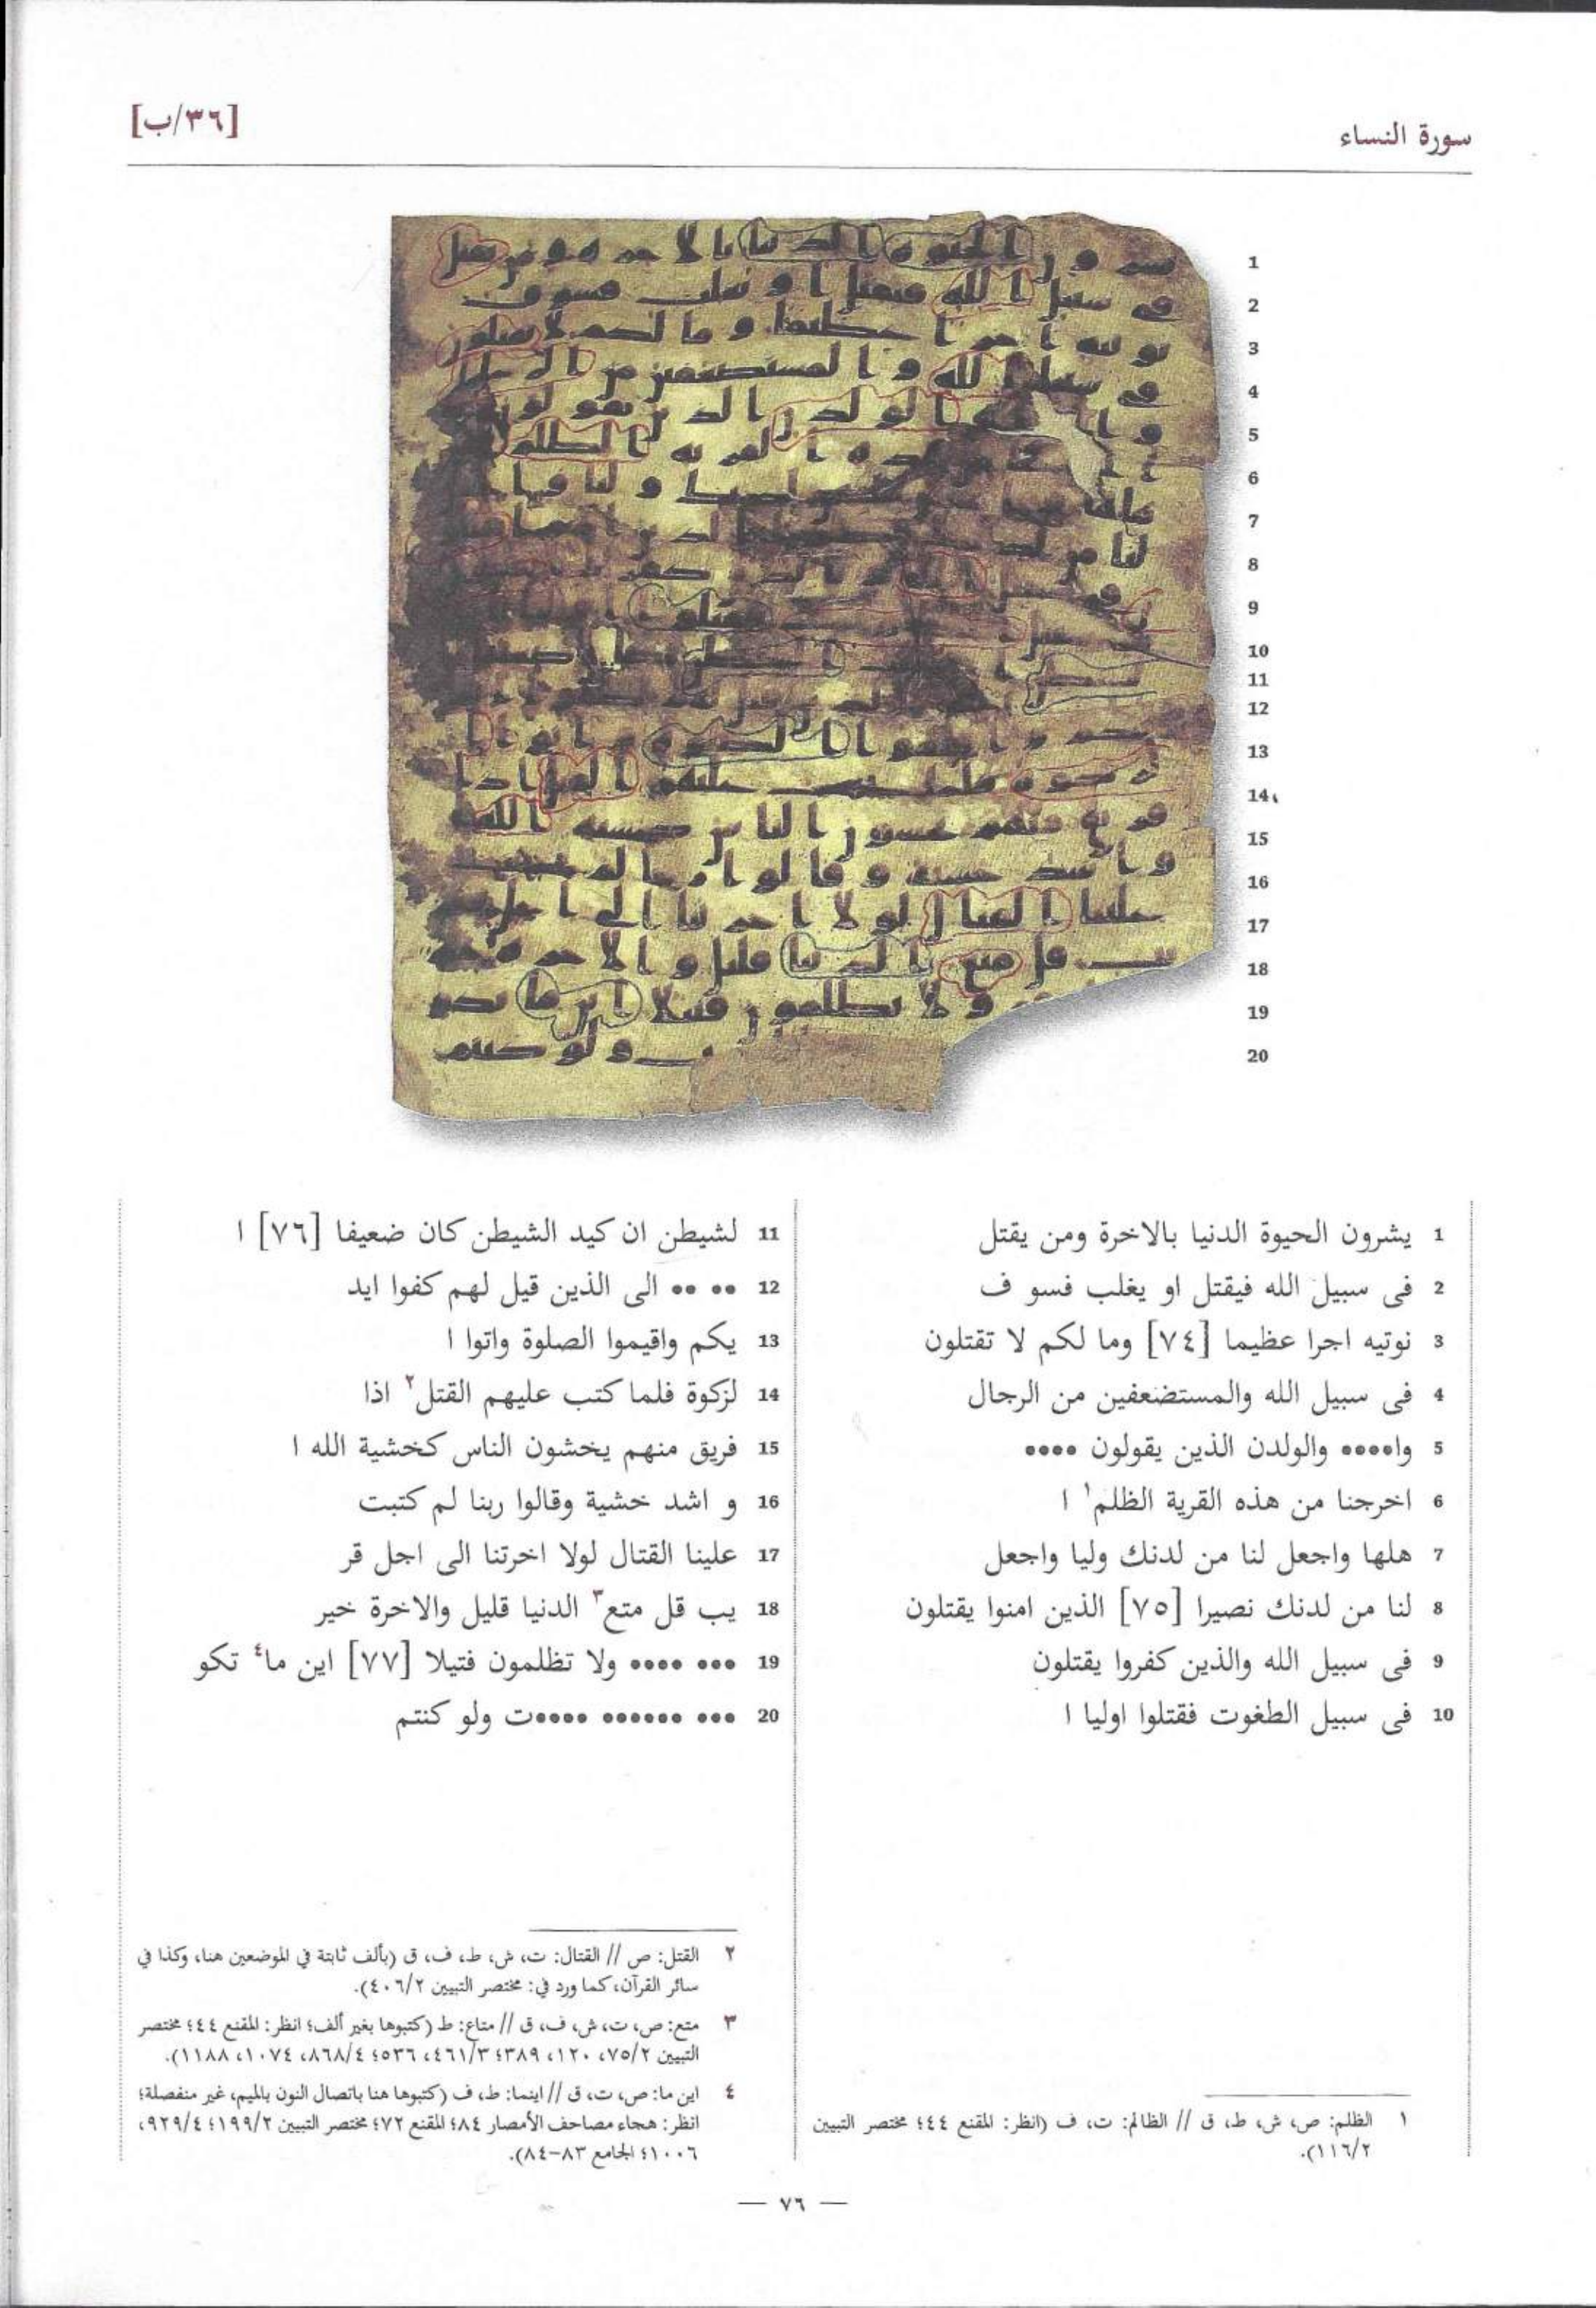 سورة النساء
[٣٦/ب]
1 يشرون الحيوة الدنيا بالاخرة ومن يقتل
2 فى سبيل الله فيقتل او يغلب فسو ف
3 نوتيه اجرا عظيما [٧٤] وما لكم لا تقتلون
4 فى سبيل الله والمستضعفين من الرجال
5 وا•••• والولدن الذين يقولون ••••
6 اخرجنا من هذه القرية الظلم١ ا
7 هلها واجعل لنا من لدنك وليا واجعل
8 لنا من لدنك نصيرا [٧٥] الذين امنوا يقتلون
9 فى سبيل الله والذين كفروا يقتلون
10 فى سبيل الطغوت فقتلوا اوليا ا
11 لشيطن ان كيد الشيطن كان ضعيفا [٧٦] ا
12 •• •• الى الذين قيل لهم كفوا ايد
13 يكم واقيموا الصلوة واتوا ا
14 لزكوة فلما كتب عليهم القتل٢ اذا
15 فريق منهم يخشون الناس كخشية الله ا
16 و اشد خشية وقالوا ربنا لم كتبت
17 علينا القتال لولا اخرتنا الى اجل قر
18 يب قل متع٣ الدنيا قليل والاخرة خير
19 ••• •••• ولا تظلمون فتيلا [٧٧] اين ما٤ تكو
20 ••• •••••• ••••ت ولو كنتم
١ الظلم: ص، ش، ط، ق // الظالم: ت، ف (انظر: المقنع ٤٤؛ مختصر التبيين
١١٦/٢).
٢ القتل: ص // القتال: ت، ش، ط، ف، ق (بألف ثابتة في الموضعين هنا، وكذا في
سائر القرآن، كما ورد في: مختصر التبيين ٤٠٦/٢).
٣ متع: ص، ت، ش، ف، ق // متاع: ط (كتبوها بغير ألف؛ انظر: المقنع ٤٤؛ مختصر
التبيين ٧٥/٢، ١٢٠، ٣٨٩؛ ٤٦١/٣، ٥٣٦؛ ٨٦٨/٤، ١٠٧٤، ١١٨٨).
٤ اين ما: ص، ت، ق // اينما: ط، ف (كتبوها هنا باتصال النون بالميم، غير منفصلة؛
انظر: هجاء مصاحف الأمصار ٨٤؛ المقنع ٧٢؛ مختصر التبيين ١٩٩/٢؛ ٩٢٩/٤،
١٠٠٦؛ الجامع ٨٣-٨٤).
— ٧٦ —